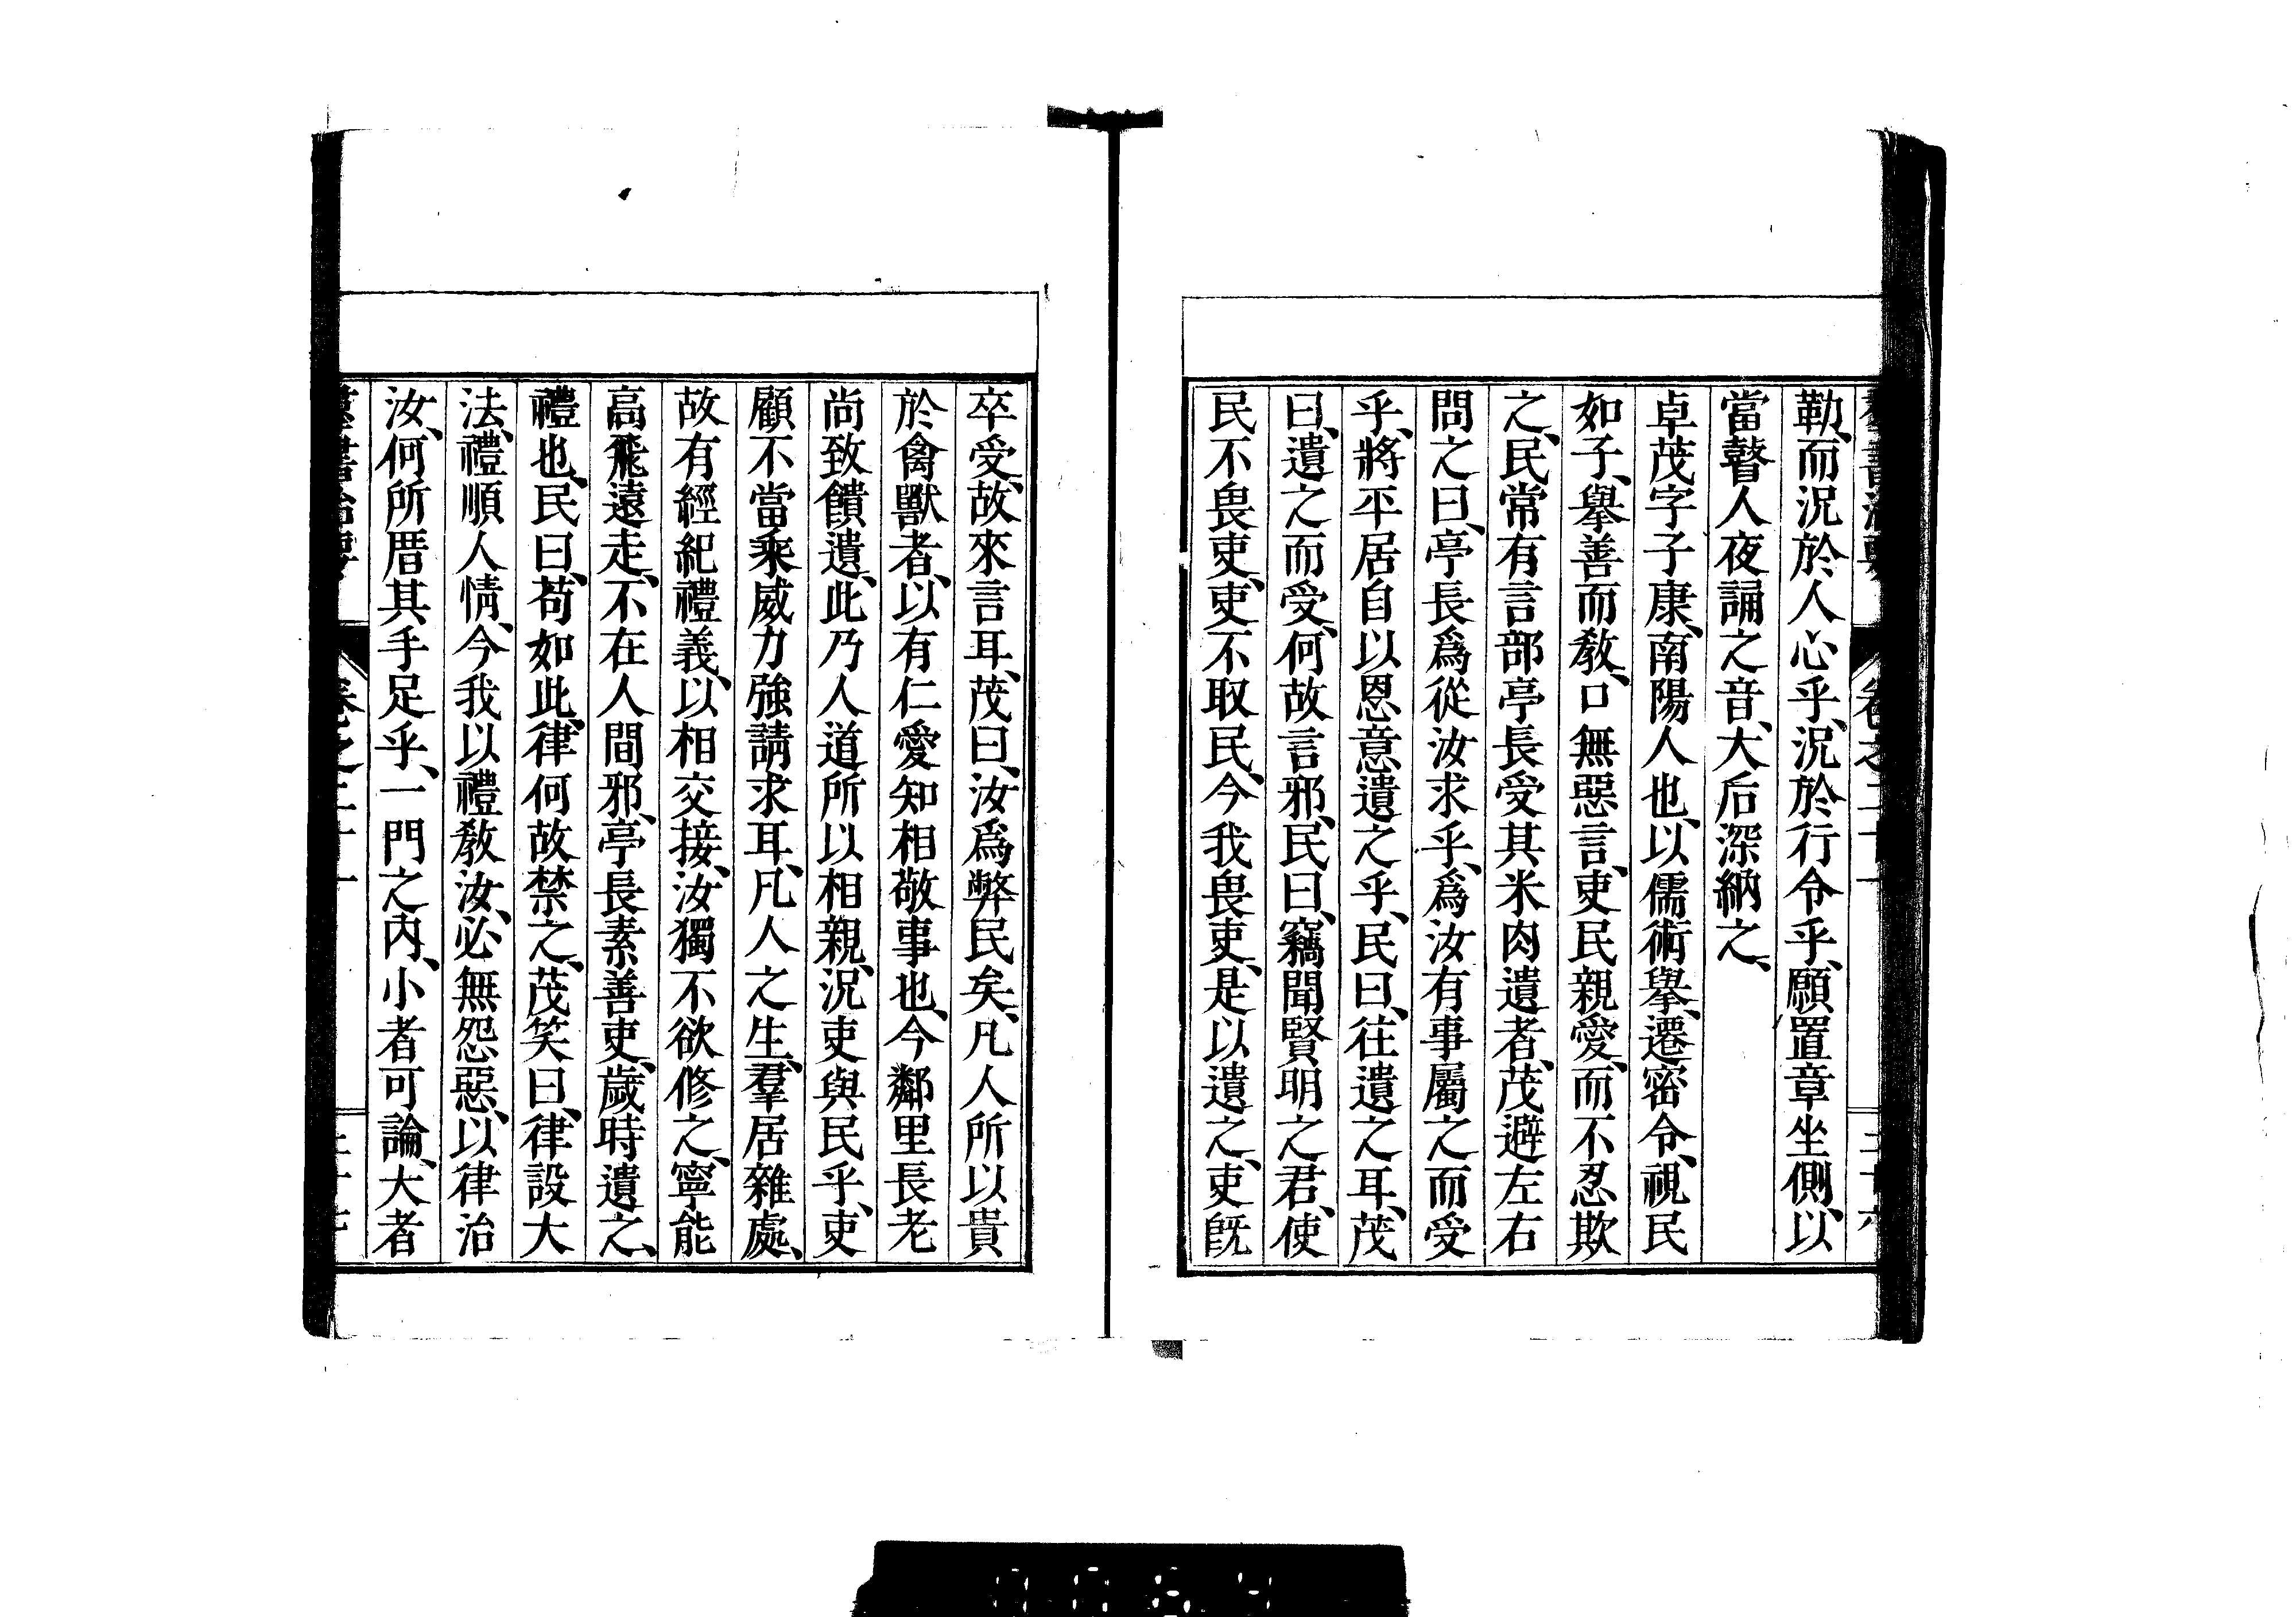 勒、而況於人心乎、況於行令乎、願置章坐側、以
當瞽人夜誦之音、大后深納之、
卓茂字子康、南陽人也、以儒術擧、遷密令、視民
如子、擧善而敎、口無惡言、吏民親愛、而不忍欺
之、民常有言部亭長受其米肉遺者、茂避左右
問之曰、亭長爲從汝求乎、爲汝有事屬之而受
乎、將平居自以恩意遺之乎、民曰、往遺之耳、茂
曰、遺之而受、何故言邪、民曰、竊聞賢明之君、使
民不畏吏、吏不取民、今我畏吏、是以遺之、吏旣
卒受、故來言耳、茂曰、汝爲弊民矣、凡人所以貴
於禽獸者、以有仁愛知相敬事也、今鄰里長老
尚致饋遺、此乃人道所以相親、況吏與民乎、吏
顧不當乘威力強請求耳、凡人之生、羣居雜處、
故有經紀禮義、以相交接、汝獨不欲修之、寧能
高飛遠走、不在人間邪、亭長素善吏、歲時遺之、
禮也、民曰、苟如此、律何故禁之、茂笑曰、律設大
法、禮順人情、今我以禮敎汝、必無怨惡、以律治
汝、何所厝其手足乎、一門之內、小者可論、大者